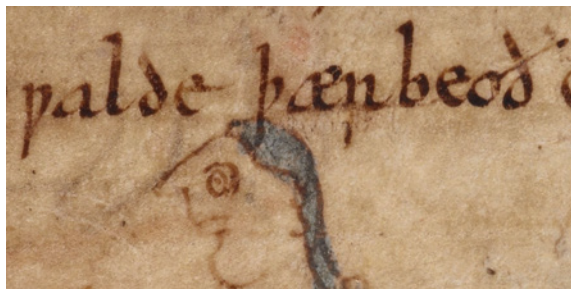 ƿalde þær beoð